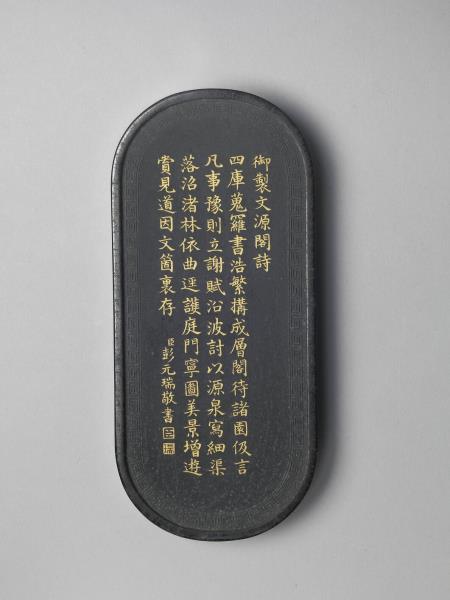 御製文源閣詩
四庫蒐羅書浩繁搆成層閣待諸園伋言
凡事豫則立謝賦沿波討以源泉寫細渠
落沼渚林依曲逕護庭門寧圖美景增遊
賞見道因文箇裏存
臣彭元瑞敬書
臣
瑞